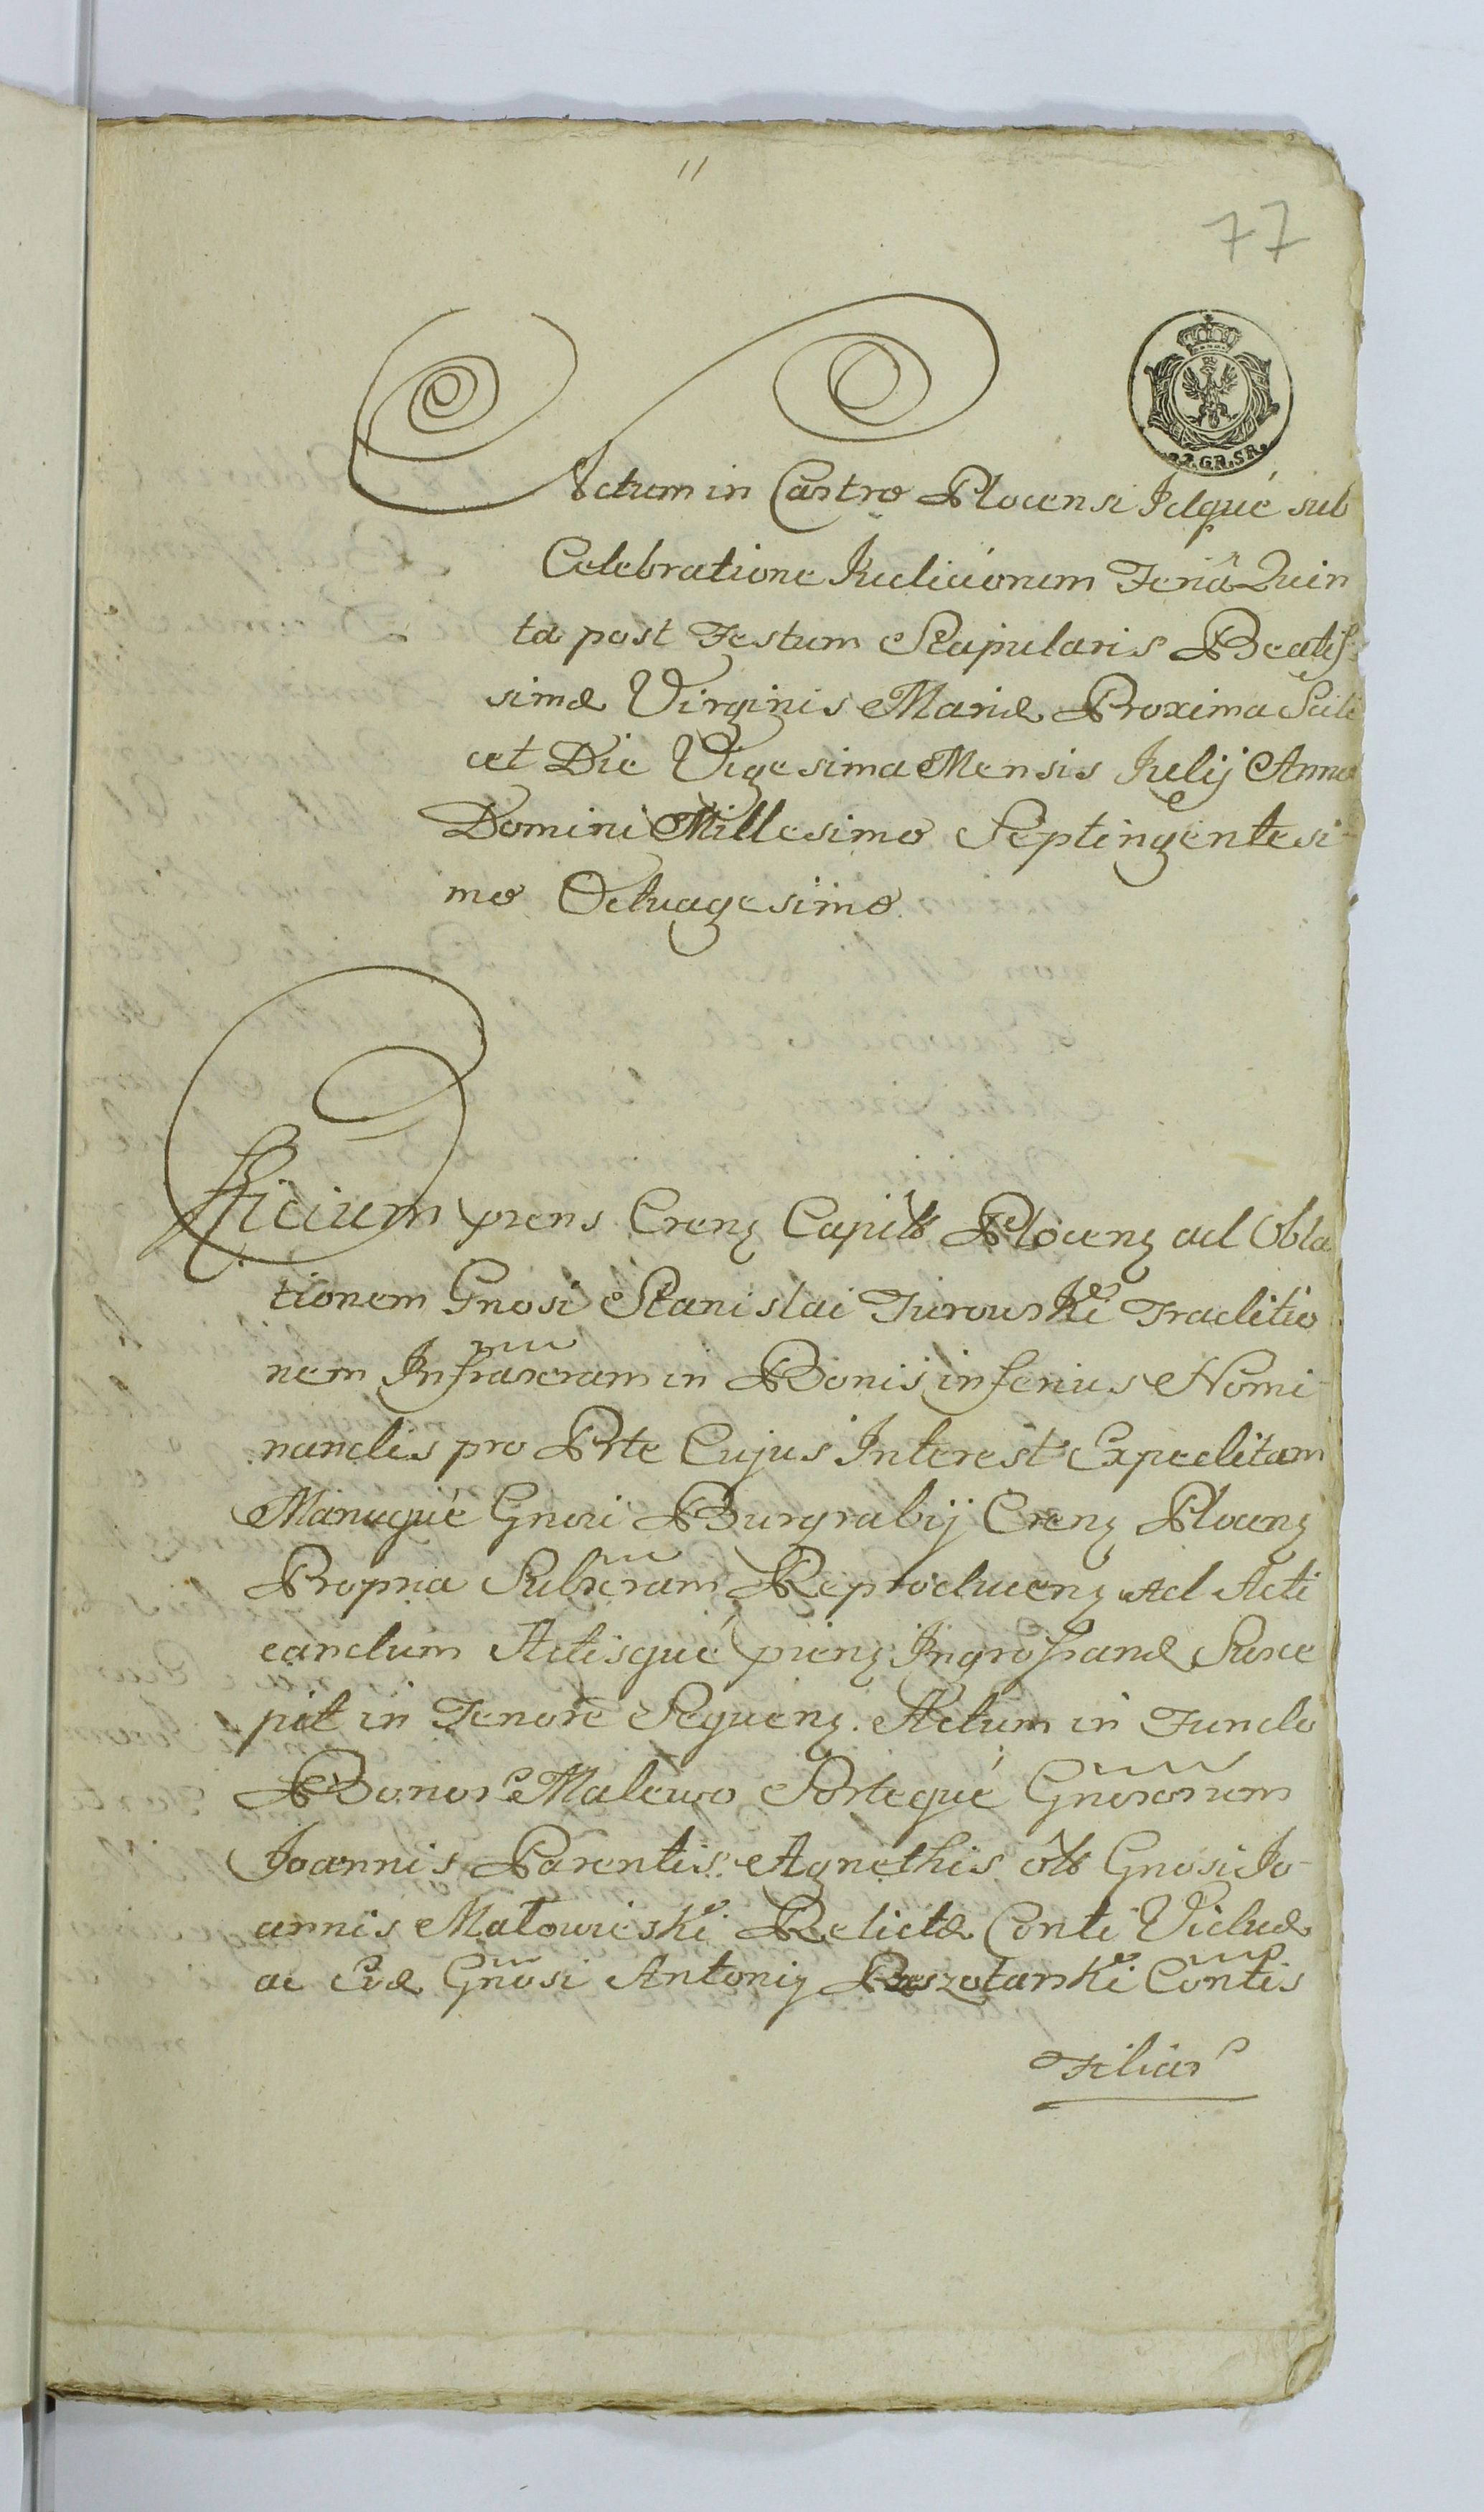 11
77
2.GR.SR.
Actum in Castro Plocensi Idque sub
Celebratione Judiciorum Feriâ Quin
ta post Festum Scapularis Beatis
simæ Virginis Mariæ Proxima Scili
cet Die Vigesima Mensis Julij Anno
Domini Millesimo Septingentesi-
mo Octuagesimo.
Officium prens Crenς Capitls Plocenς ad Obla
tionem Gnosi Stanislai Turowski Traditio
nem Infrascram in Bonis inferius Nomi-
nandis pro Prte Cujus Interest Expeditam
Manuque Gnosi Burgrabij Crenς Plocenς
Propria Subscram Reproducenς Ad Acti
candum Actisque prenς Ingrossand Susce
pit in Tenore Sequenς. Actum in Fundo
Bonor Malewo Sorteque Gnosorum
Joannis Parentis Agnethis ôls Gnosi Jo-
annis Małowieski Relictæ Conti Viduæ
ac Evæ Gnosi Antonij Reszotarski Contis
Filiar